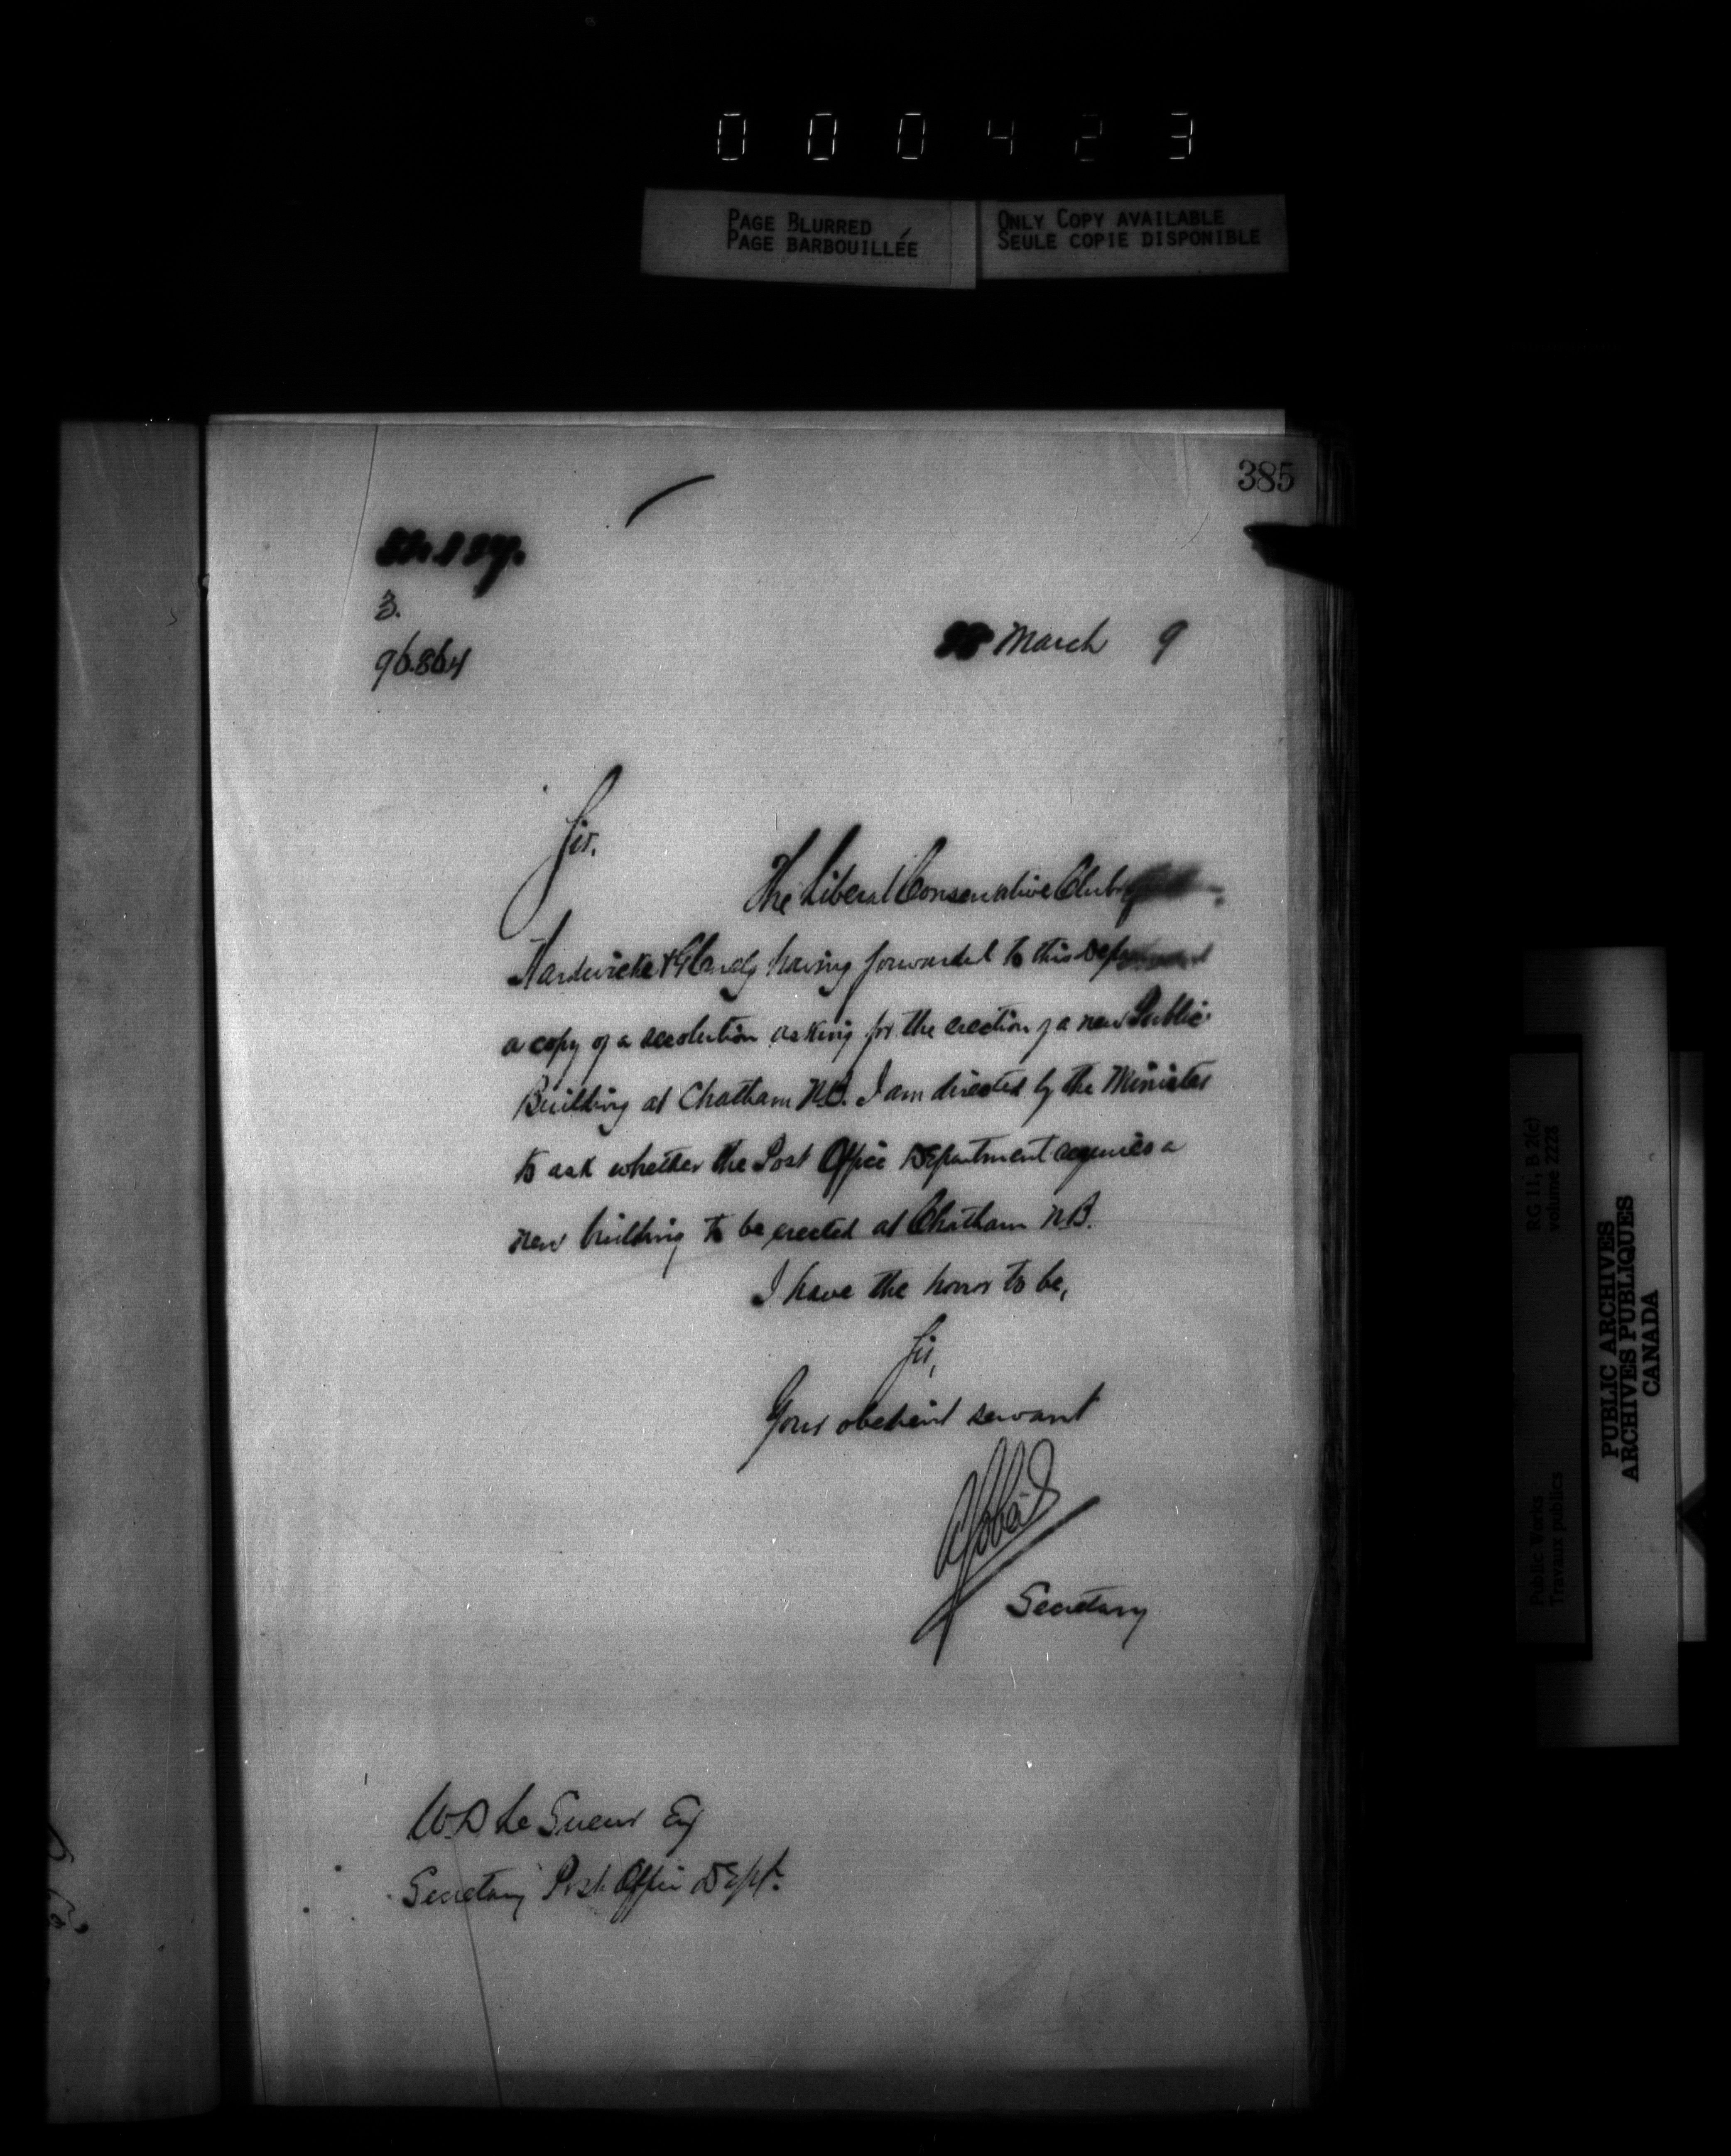 000423
PAGE BLURRED
PAGE BARBOUILLÉE
ONLY COPY AVAILABLE
SEULE COPIE DISPONIBLE
385
3.
96864
March 9
Sir.
The Liberal Conservative Club
Hardwicke & Glenelg having forwarded to this Department
a copy of a resolution asking for the erection of a new Public
Building at Chatham N.B. I am directed by the Minister
to ask whether the Post Office Department requires a
new building to be erected at Chatham N.B.
I have the honor to be,
Sir,
Your obedient servant
Secretary
W.D Le Sueur Esq
Secretary Post Office Dept.
RG 11, B 2(c)
volume 2228
Public Works
Travaux publics
PUBLIC ARCHIVES
ARCHIVES PUBLIQUES
CANADA